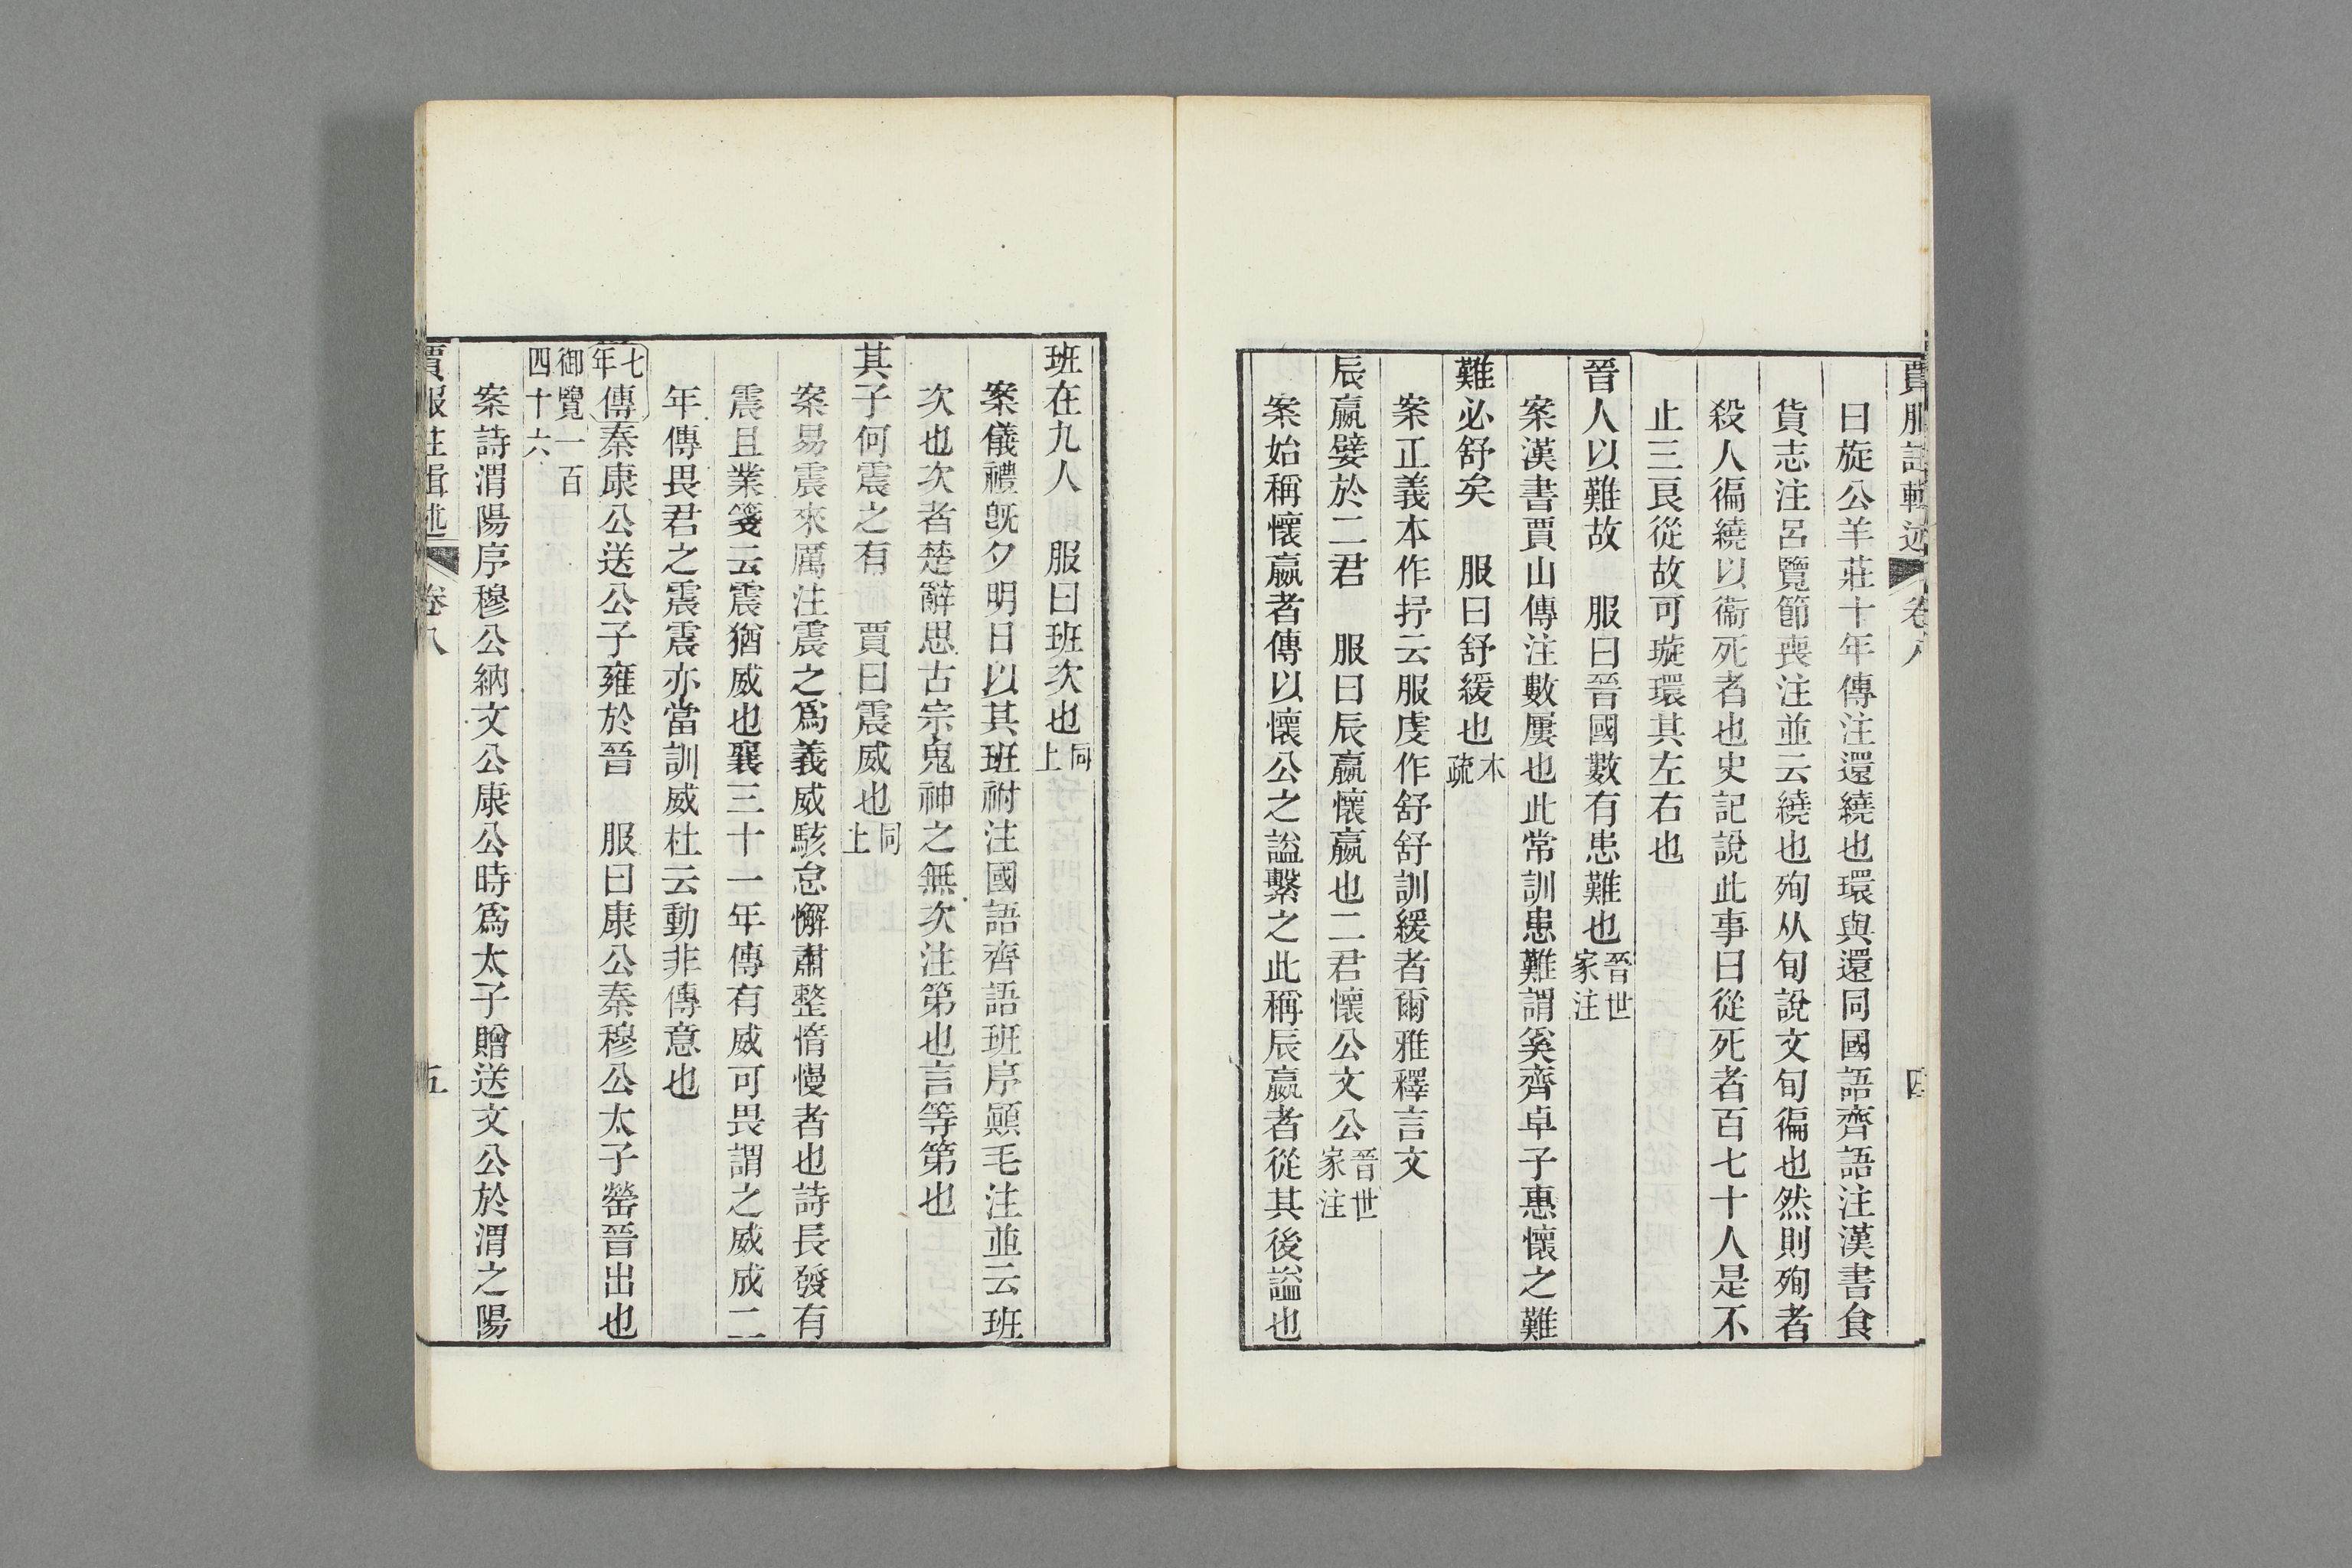 賈服註輯述 卷八 四
曰旋公羊莊十年傳注還繞也環與還同國語齊語注漢書食
貨志注呂覽節喪注並云繞也殉从旬說文旬徧也然則殉者
殺人徧繞以衞死者也史記說此事曰從死者百七十人是不
止三良從故可璇環其左右也
晉人以難故　服曰晉國數有患難也晉世家注
案漢書賈山傳注數屢也此常訓患難謂奚齊卓子惠懷之難
難必舒矣　服曰舒緩也本疏
案正義本作抒云服虔作舒舒訓緩者爾雅釋言文
辰嬴嬖於二君　服曰辰嬴懷嬴也二君懷公文公晉世家注
案始稱懷嬴者傳以懷公之謚繫之此稱辰嬴者從其後謚也
班在九人　服曰班次也同上
案儀禮旣夕明日以其班祔注國語齊語班序顚毛注並云班
次也次者楚辭思古宗鬼神之無次注第也言等第也
其子何震之有　賈曰震威也同上
案易震來厲注震之爲義威駭怠懈肅整惰慢者也詩長發有
震且業箋云震猶威也襄三十一年傳有威可畏謂之威成二
年傳畏君之震震亦當訓威杜云動非傳意也
七年傳秦康公送公子雍於晉　服曰康公秦穆公太子罃晉出也
御覽一百四十六
案詩渭陽序穆公納文公康公時爲太子贈送文公於渭之陽
賈服註輯述 卷八 五